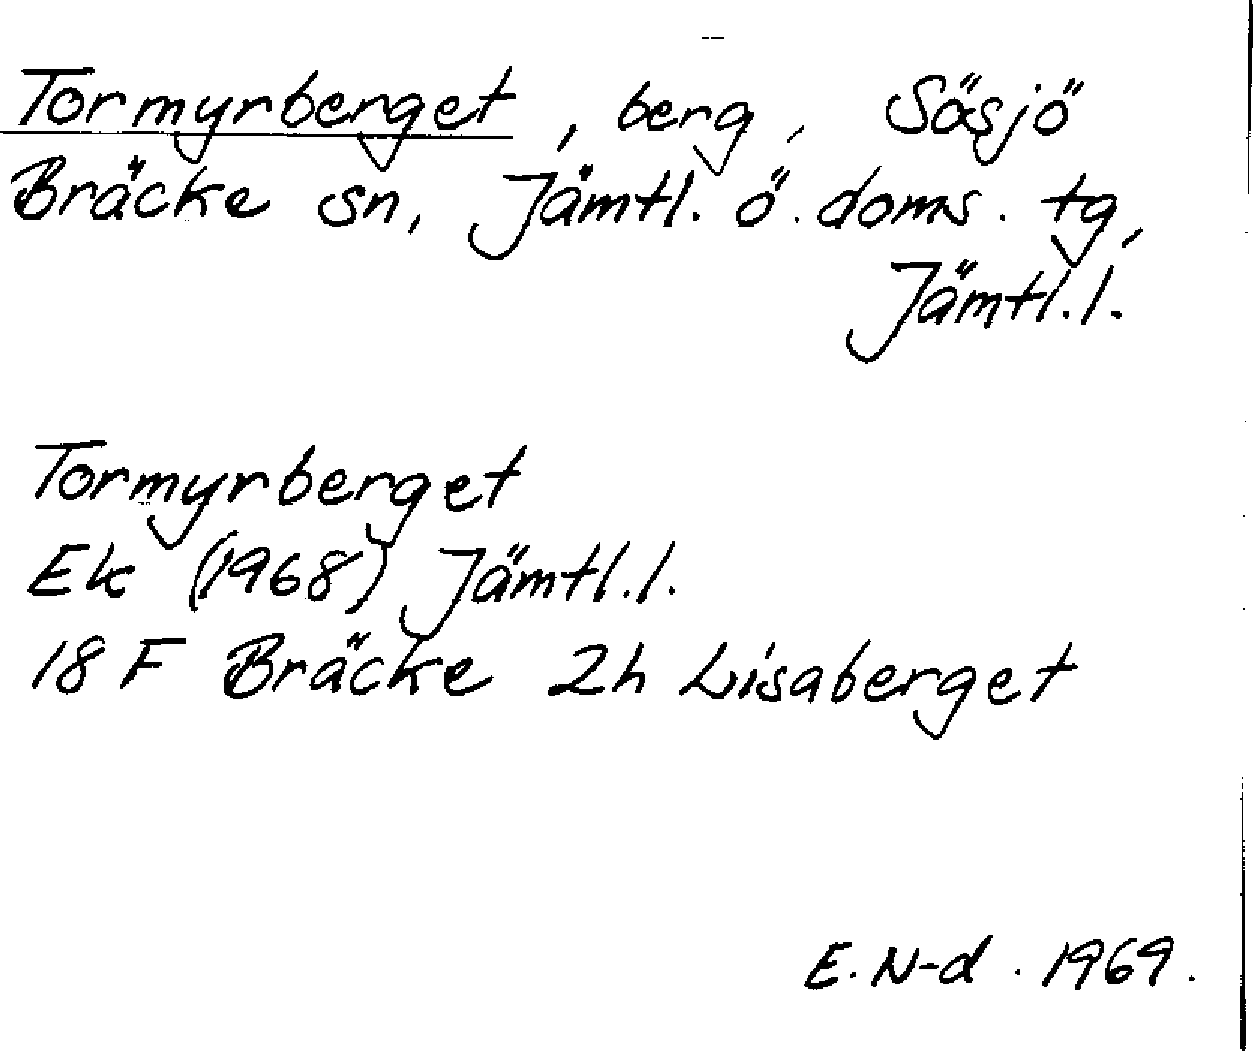 Tormyrberget, berg, Sösjö
Bräcke sn, Jämtl. ö. doms. tg,
Jämtl. l.
Tormyrberget
Ek (1968) Jämtl. l.
18 F Bräcke 2h Lisaberget
E. N-d. 1969.